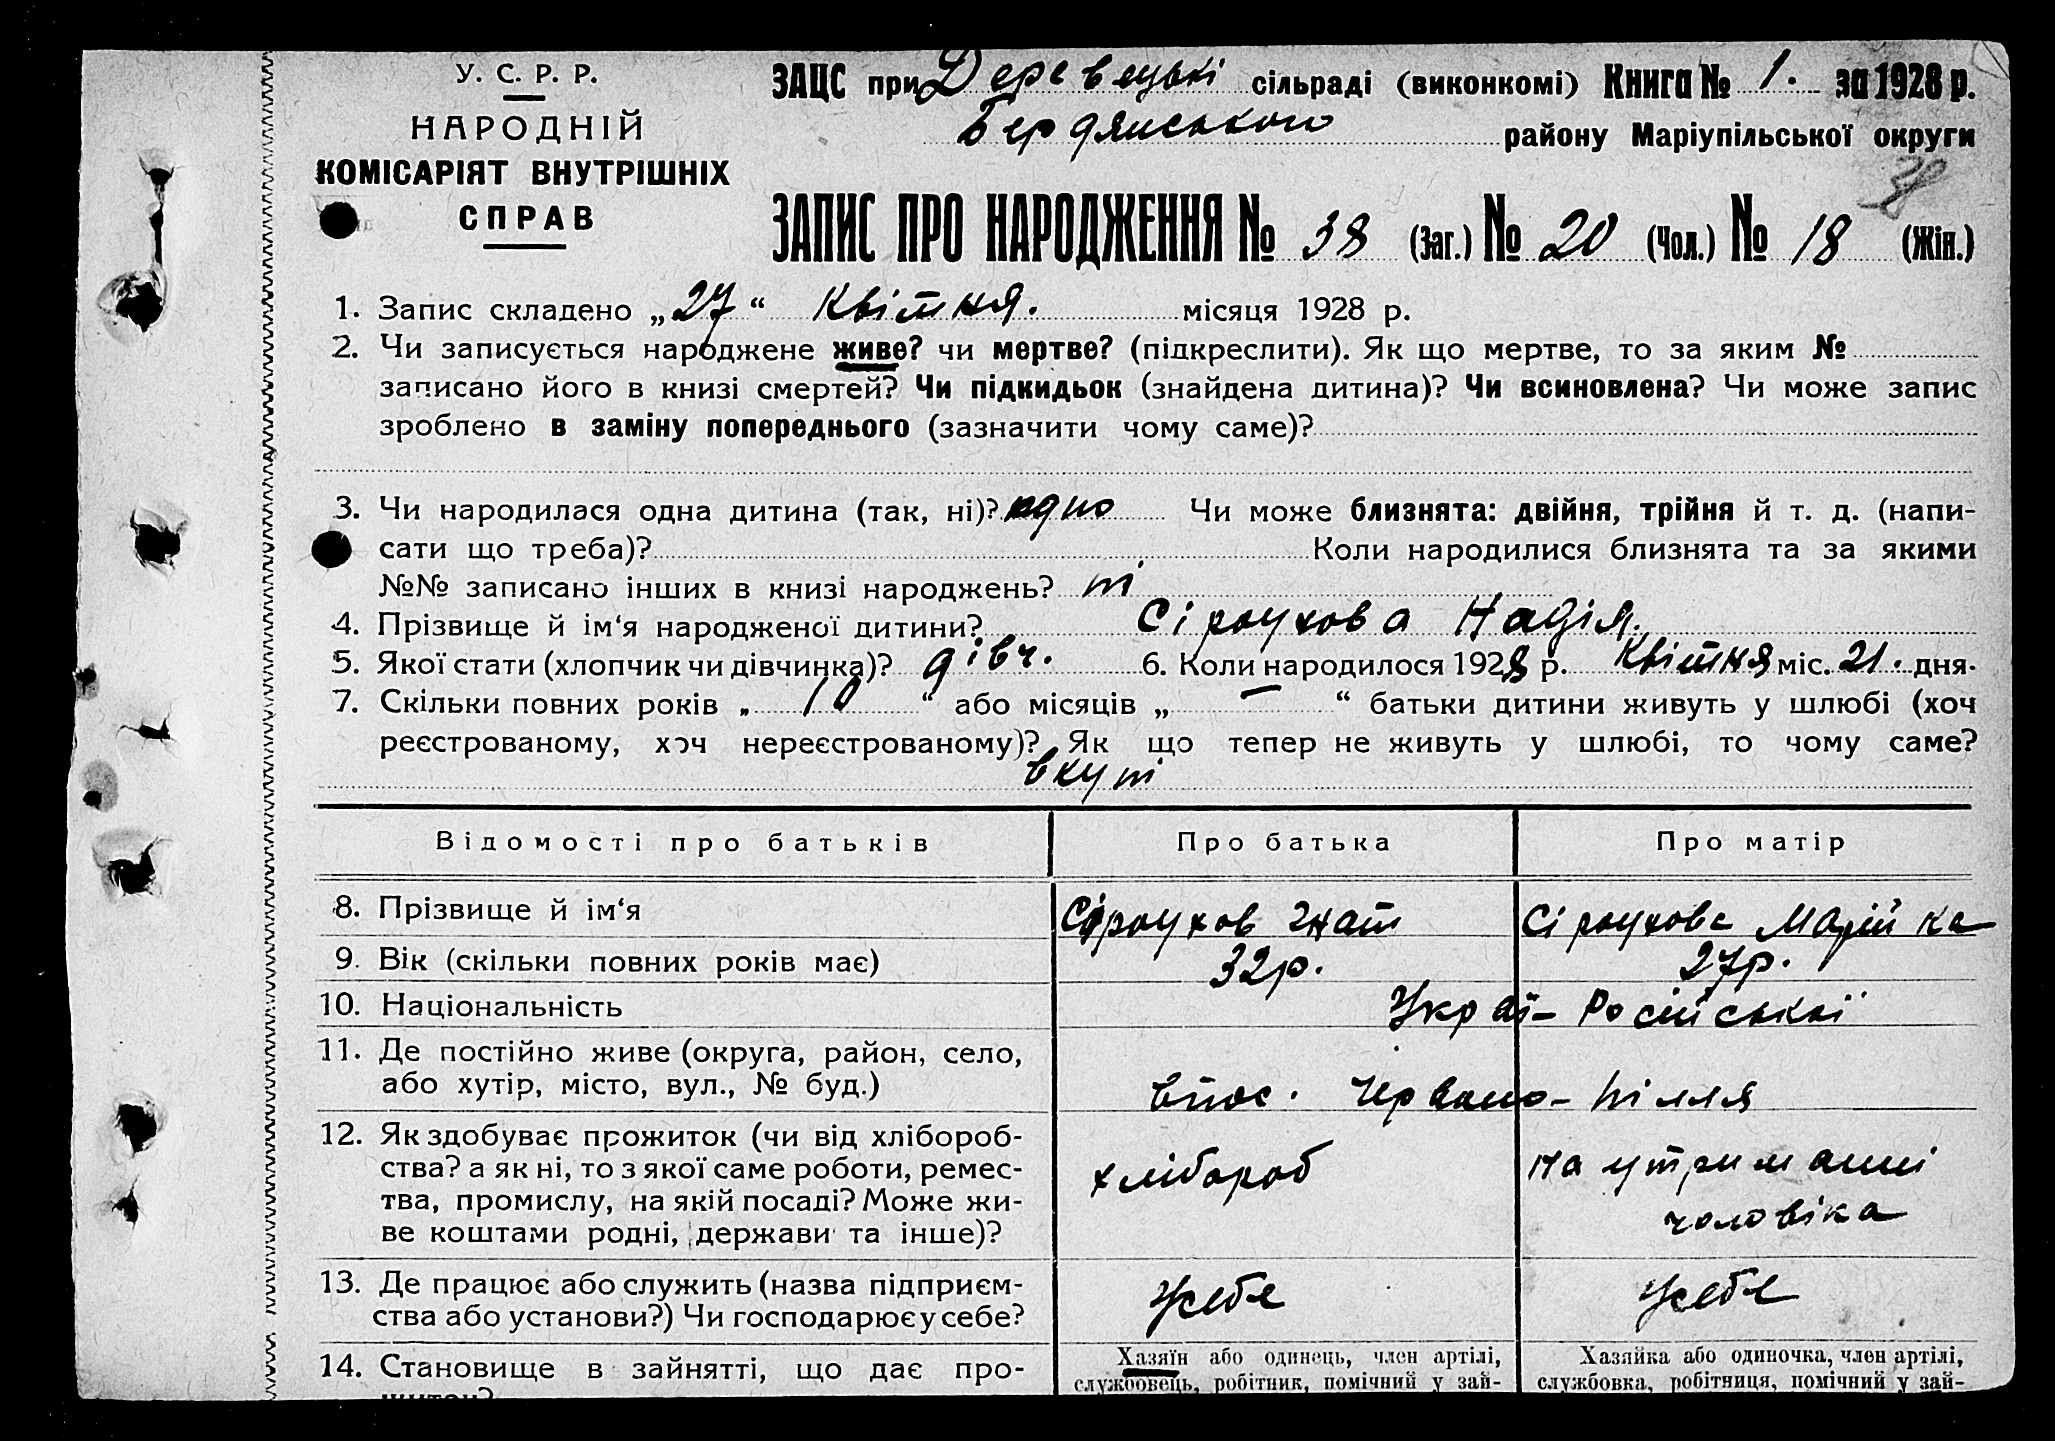 У. С. Р. Р.
НАРОДНІЙ
КОМІСАРІЯТ ВНУТРІШНІХ
СПРАВ
ЗАЦС при Деревецькі сільраді (виконкомі) Книга № 1. за 1928 р.
Бердянського району Маріупільської округи
38
ЗАПИС ПРО НАРОДЖЕННЯ № 38 (Заг.) № 20 (Чол.) № 18 (Жін.)
1. Запис складено „27“ Квітня. місяця 1928 р.
2. Чи записується народжене живе? чи мертве? (підкреслити). Як що мертве, то за яким №
записано його в книзі смертей? Чи підкидьок (знайдена дитина)? Чи всиновлена? Чи може запис
зроблено в заміну попереднього (зазначити чому саме)?
3. Чи народилася одна дитина (так, ні)? одно Чи може близнята: двійня, трійня й т. д. (напи-
сати що треба)? Коли народилися близнята та за якими
№№ записано інших в книзі народжень? ні
4. Прізвище й ім‘я народженої дитини? Сіроухова Надія.
5. Якої стати (хлопчик чи дівчинка)? дівч. 6. Коли народилося 1928 р. Квітня міс. 21. дня.
7. Скільки повних років „ 10 “ або місяців „ — “ батьки дитини живуть у шлюбі (хоч
реєстрованому, хоч нереєстрованому)? Як що тепер не живуть у шлюбі, то чому саме?
вкупі
Відомості про батьків Про батька Про матір
8. Прізвище й ім‘я Сіроухов Гнат Сіроухова Марійка
9. Вік (скільки повних років має) 32р. 27р.
10. Національність Украї- Російської
11. Де постійно живе (округа, район, село,
або хутір, місто, вул., № буд.) впос. Червоно- Пілля
12. Як здобуває прожиток (чи від хлібороб-
ства? а як ні, то з якої саме роботи, ремес-
тва, промислу, на якій посаді? Може жи-
ве коштами родні, держави та інше)?
хлібороб
на утриманні
чоловіка
13. Де працює або служить (назва підприєм-
ства або установи?) Чи господарює у себе?
У себе
У себе
14. Становище в зайнятті, що дає про-
житок?
Хазяїн або одинець, член артілі,
службовець, робітник, помічний у зай-
Хазяйка або одиночка, член артілі,
службовка, робітниця, помічний у зай-